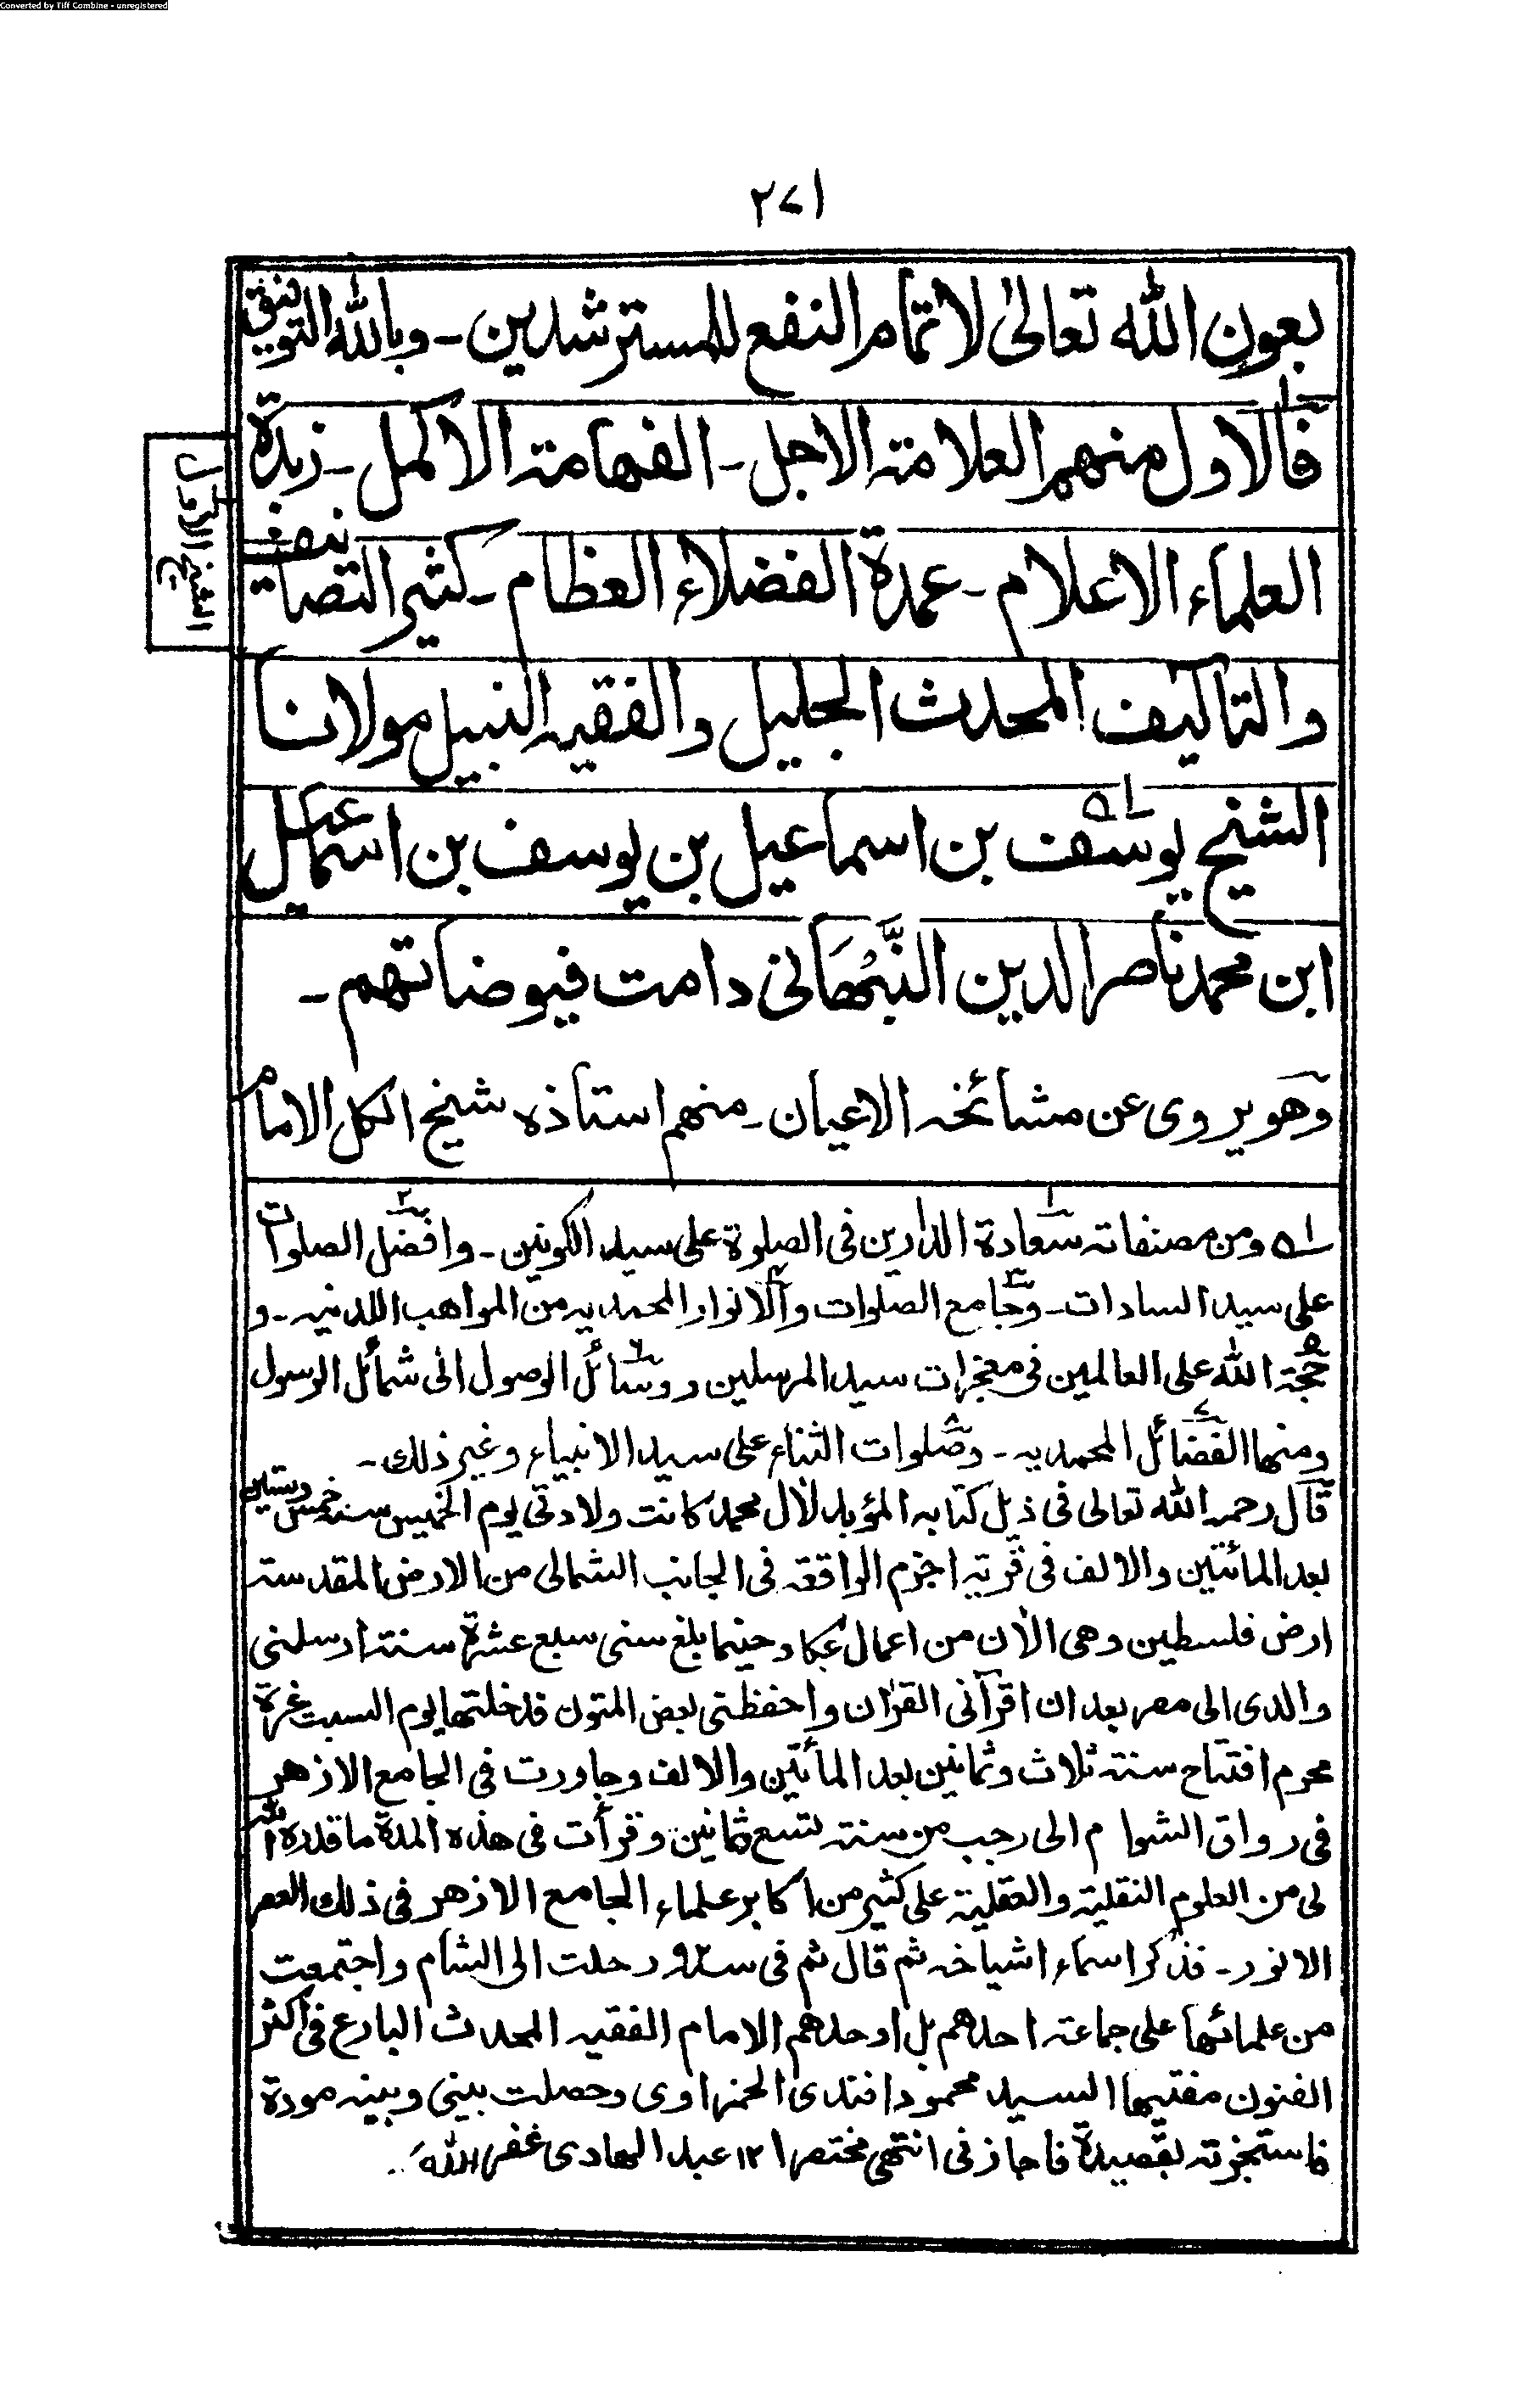 Converted by Tiff Combine - unregistered
٢٧١
بعون الله تعالیٰ لاتمام النفع للمسترشدین ـ وبالله التوفیق
فالاول منهم العلامة الاجل ـ الفهامة الاکمل ـ زبدة
العلماء الاعلام ـ عمدة الفضلاء العظام ـ کثیر التصانیف
والتآلیف المحدث الجلیل والفقیه النبیل مولانا
الشیخ یوسف بن اسماعیل بن یوسف بن اسماعیل
ابن محمد ناصر الدین النَّبْهَانی دامت فیوضاتهم ـ
وهو یروی عن مشائخه الاعیان ـ منهم استاذه شیخ الکل الامام
الشیخ الاول
ومن مصنفاته سعادة الدارین فی الصلوة علی سید الکونین ـ وافضل الصلوات
علی سید السادات ـ وجامع الصلوات والانوار المحمدیه من المواهب اللدنیه ـ و
حجة الله علی العالمین فی معجزات سید المرسلین ووسائل الوصول الی شمائل الرسول
ومنها الفضائل المحمدیه ـ وصلوات الثناء علی سید الانبیاء وغیر ذلك ـ
قال رحمه الله تعالی فی ذیل کتابه المؤبد لآل محمد کانت ولادتی یوم الخمیس سنة خمس وستین
بعد المائتین والالف فی قریة اجزم الواقعة فی الجانب الشمالی من الارض المقدسة
ارض فلسطین وهی الآن من اعمال عکا وحینما بلغ سنی سبع عشرة سنة ارسلنی
والدی الی مصر بعد ان اقرآنی القرآن واحفظنی بعض المتون فدخلتها یوم السبت غرة
محرم افتتاح سنة ثلاث وثمانین بعد المأتین والالف وجاورت فی الجامع الازهر
فی رواق الشوام الی رجب من سنة تسع ثمانین وقرأت فی هذه المدة ما قدره الله
لی من العلوم النقلیة والعقلیة علی کثیر من اکابر علماء الجامع الازهر فی ذلك العصر
الانور ـ فذکر اسماء اشیاخه ثم قال ثم فی سنة رحلت الی الشام واجتمعت
من علمائها علی جماعة احدهم بل اوحدهم الامام الفقیه المحدث البارع فی اکثر
الفنون مفتیها السید محمود افندی الحمزاوی وحصلت بینی وبینه مودة
فاستجزته بقصیدة فاجازنی انتهی مختصرا ١٢ عبد الهادی غفر الله